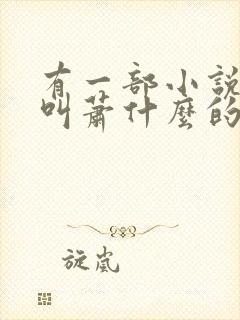 有一部小説
叫蕭什麼的
旋嵐